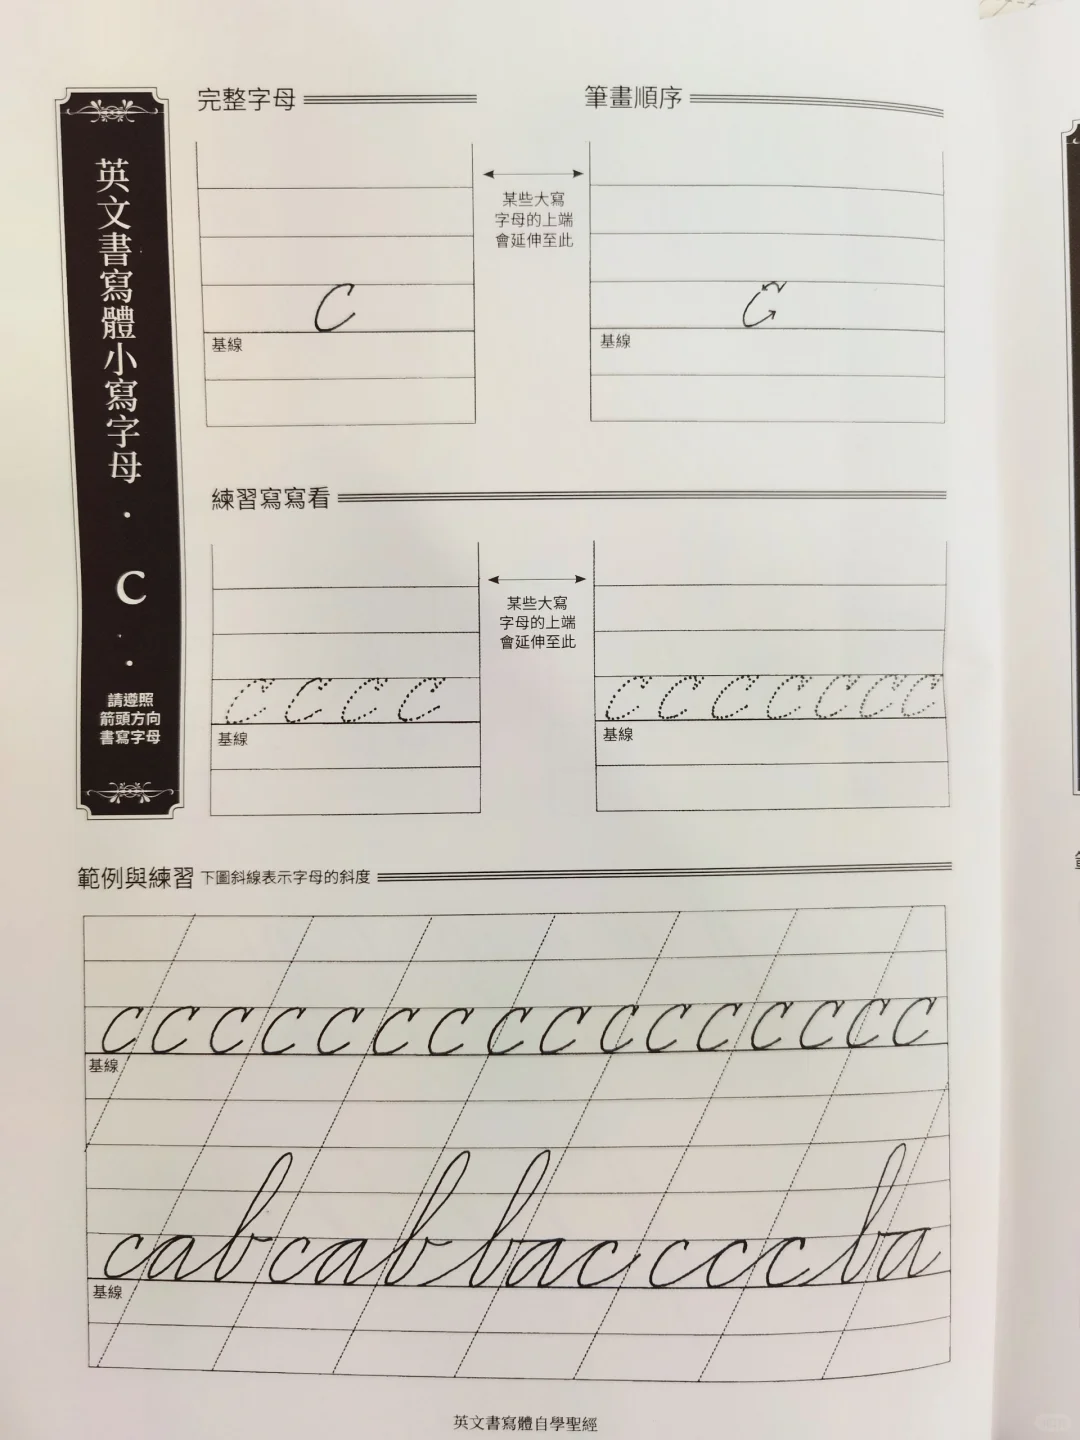 英文書寫體小寫字母 · c ·
請遵照
箭頭方向
書寫字母
完整字母
筆畫順序
某些大寫
字母的上端
會延伸至此
c
c
基線
基線
練習寫寫看
某些大寫
字母的上端
會延伸至此
c c c c
c c c c c c c
基線
基線
範例與練習 下圖斜線表示字母的斜度
c c c c c c c c c c c c c c c c
基線
cabcabbacccclba
基線
英文書寫體自學聖經